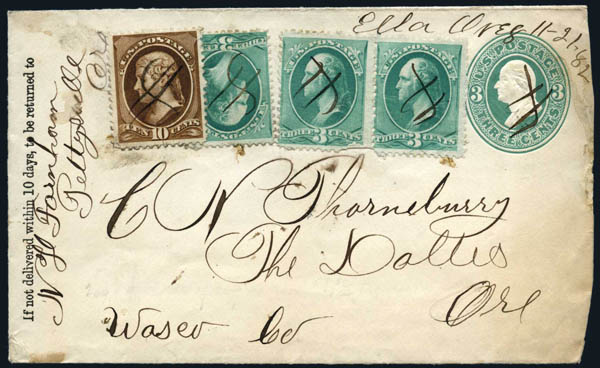 Ella Oreg 11-21-82
U.S. POSTAGE
TEN 10 CENTS
U.S. POSTAGE
THREE 3 CENTS
U.S. POSTAGE
THREE 3 CENTS
U.S. POSTAGE
3 3
THREE CENTS
If not delivered within 10 days, to be returned to
N H Farnham
Pettysville
Ore
C N Thorneburry
The Dalles
Ore
Wasco Co